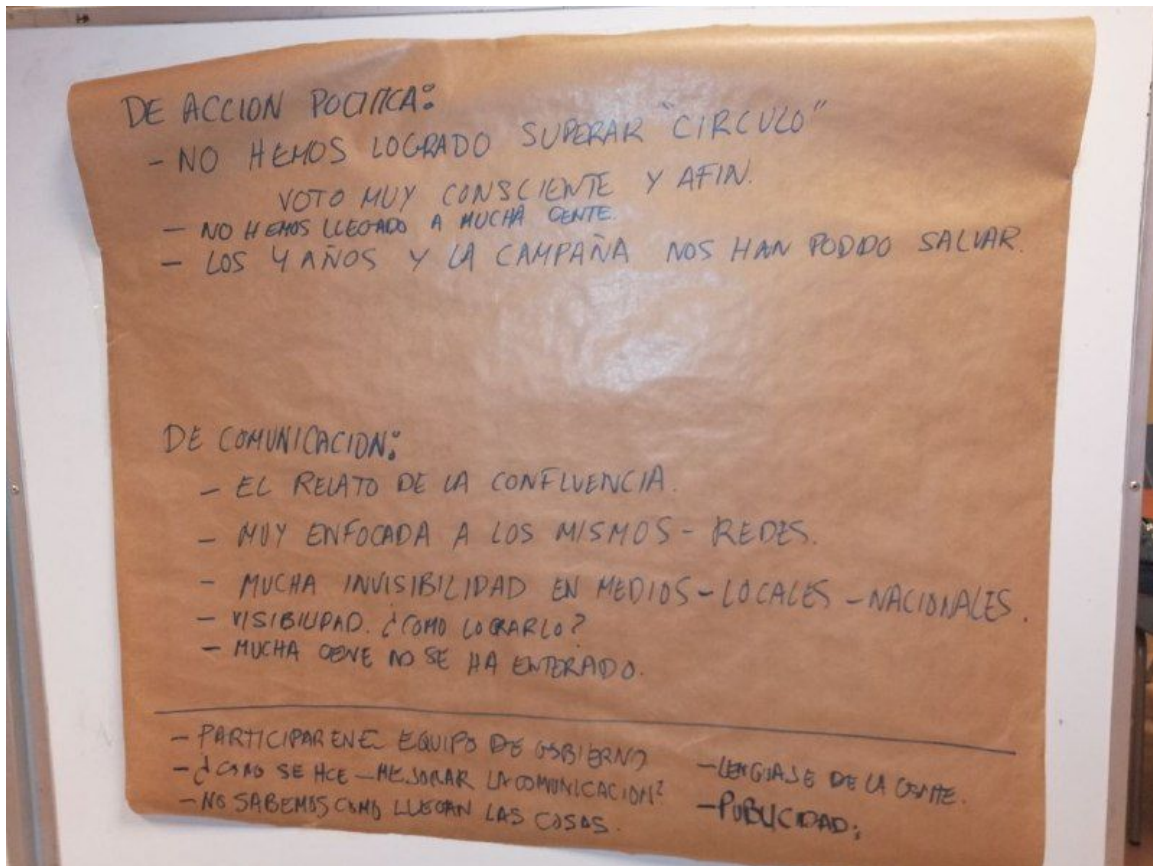 DE ACCION POLITICA:
- NO HEMOS LOGRADO SUPERAR "CIRCULO"
VOTO MUY CONSCIENTE Y AFIN.
- NO HEMOS LLEGADO A MUCHA GENTE.
- LOS 4 AÑOS Y LA CAMPAÑA NOS HAN PODIDO SALVAR.
DE COMUNICACION:
- EL RELATO DE LA CONFLUENCIA.
- MUY ENFOCADA A LOS MISMOS - REDES.
- MUCHA INVISIBILIDAD EN MEDIOS - LOCALES - NACIONALES.
- VISIBILIDAD. ¿COMO LOGRARLO?
- MUCHA GENE NO SE HA ENTERADO.
- PARTICIPAR EN EL EQUIPO DE GOBIERNO
- ¿COMO SE HCE - MEJORAR LA COMUNICACION?
- NO SABEMOS COMO LLEGAN LAS COSAS.
- LENGUAJE DE LA GENTE.
- PUBLICIDAD: